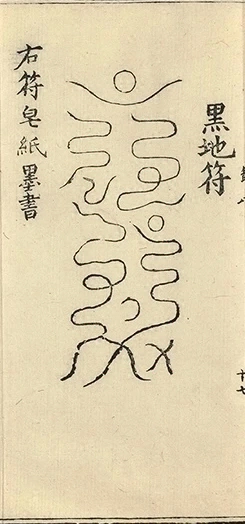 黑地符
右符皂紙墨書
十七